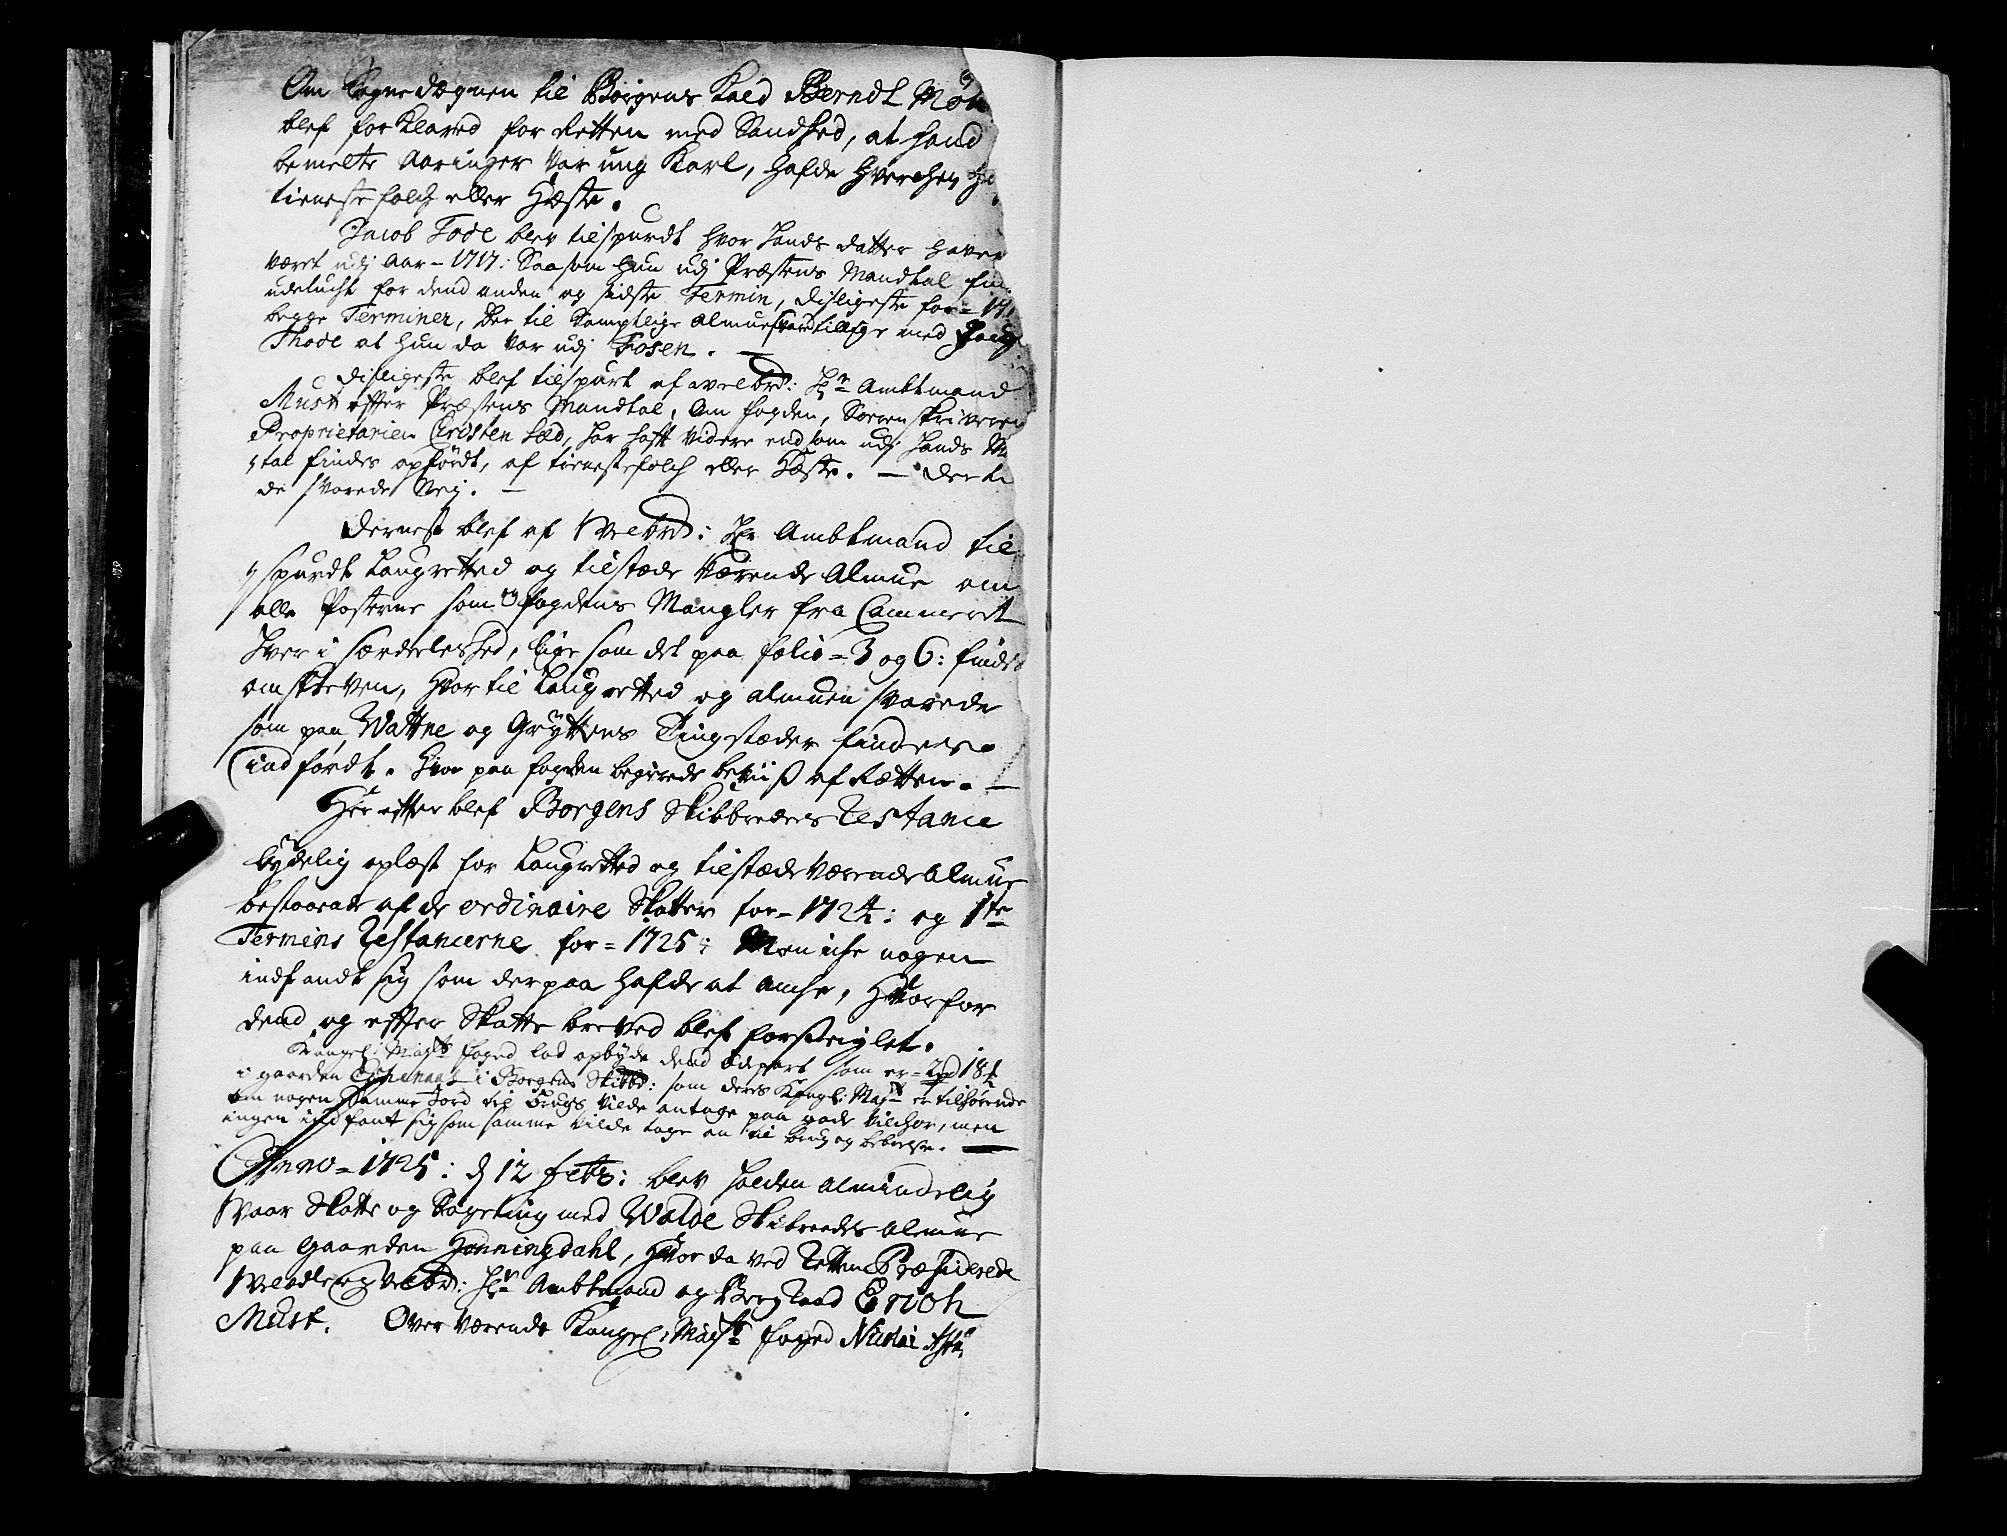 Om Sogne dægnen til Borgens Kald Berndt
blef forklared for Retten med Sandhed, at hand
bemelte Aaringer var ung Karl, hafde hverchen
tienestefolch eller Hæste.
Jacob Tode blev tilspurdt hvor hands datter haver
været udj Aar - 1717: Saasom hun udj Præstens Mandtal
udelucht for dend anden og sidste Termin, disligeste for =
begge Terminer, der til Samptlige Almue med
Thode at hun da var udj Fosen. —
disligeste blef tilspurt af velbrd: Hr Ambtmand
Must effter Præstens Mandtal, Om fogden, Sorenskriveren
Proprietarien Cristen hafft videre end som udj hands
tal findes opfördt, af tienestefolch eller Hæste. — dertil
de svarede Nej. —
Dernest blef af Welbrd: Hr Ambtmand til
spurdt Laugretted og tilstæde værende Almue om
alle Posterne som fogdens Mangler fra Cammeret
hver i særdeleshed, lige som det paa folio = 3 og 6: findes
omskreven, hvor til Laugretted og almuen svarede
som paa Wattne og Gryttens Tingstæder findes
indfördt. Hvor paa fogden begierede beviis af Retten. —
Her effter blef Borgens Skibbredes Restance
lydelig oplæst for Laugretted og tilstæde værende Almue
bestaaende af de ordinaire Skatter for - 1724: og 1te
Termins Restancerne for = 1725: Men iche nogen
indfandt sig som derpaa hafde at anche, Hvorfor
dend og effter Skatte breved blef forseiglet.
Kongel: Mayts foged lod opbyde dend som er
i gaarden i Borgens Skibbr: som deris Kongl: Mayt er tilhørende
om nogen samme Jord til brugs vilde antage paa gode vilchor, men
ingen indfant sig som samme vilde tage an til brug og
Anno = 1725: d 12 febr: blev holden almindelig
Waar Skatte og Sageting med Wolde Skibreedes almue
paa Gaarden Honningdahl, hvor da ved Retten Præsiderede
velbrd: Hr Ambtmand og Berg Raad Erich
Must. Over værende Kongel: Mayts foged Nicolai